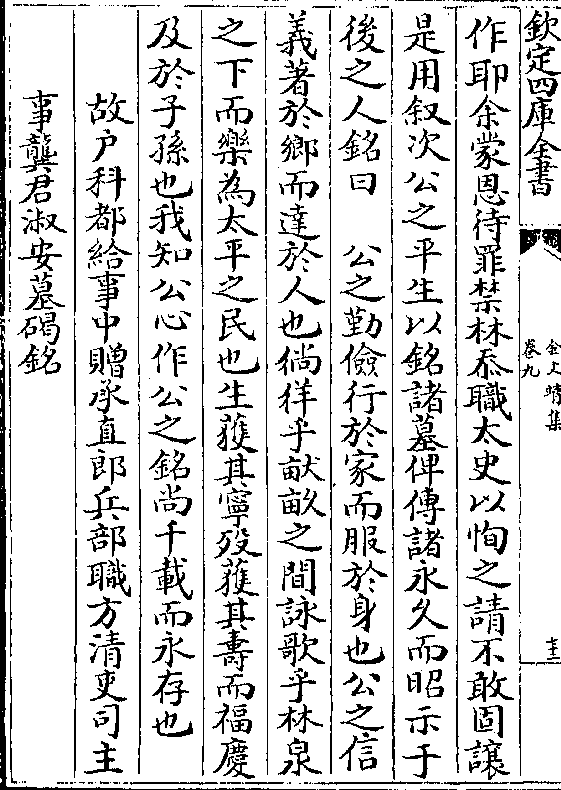 欽定四庫全書
金文靖集
卷九
十三
作耶余蒙恩待罪禁林忝職太史以恂之請不敢固讓
是用叙次公之平生以銘諸墓俾傳諸永久而昭示于
後之人銘曰　公之勤儉行於家而服於身也公之信
義著於鄉而達於人也徜徉乎畎畝之間詠歌乎林泉
之下而樂為太平之民也生獲其寧殁獲其壽而福慶
及於子孫也我知公心作公之銘尚千載而永存也
故户科都給事中贈承直郎兵部職方清吏司主
事龔君淑安墓碣銘